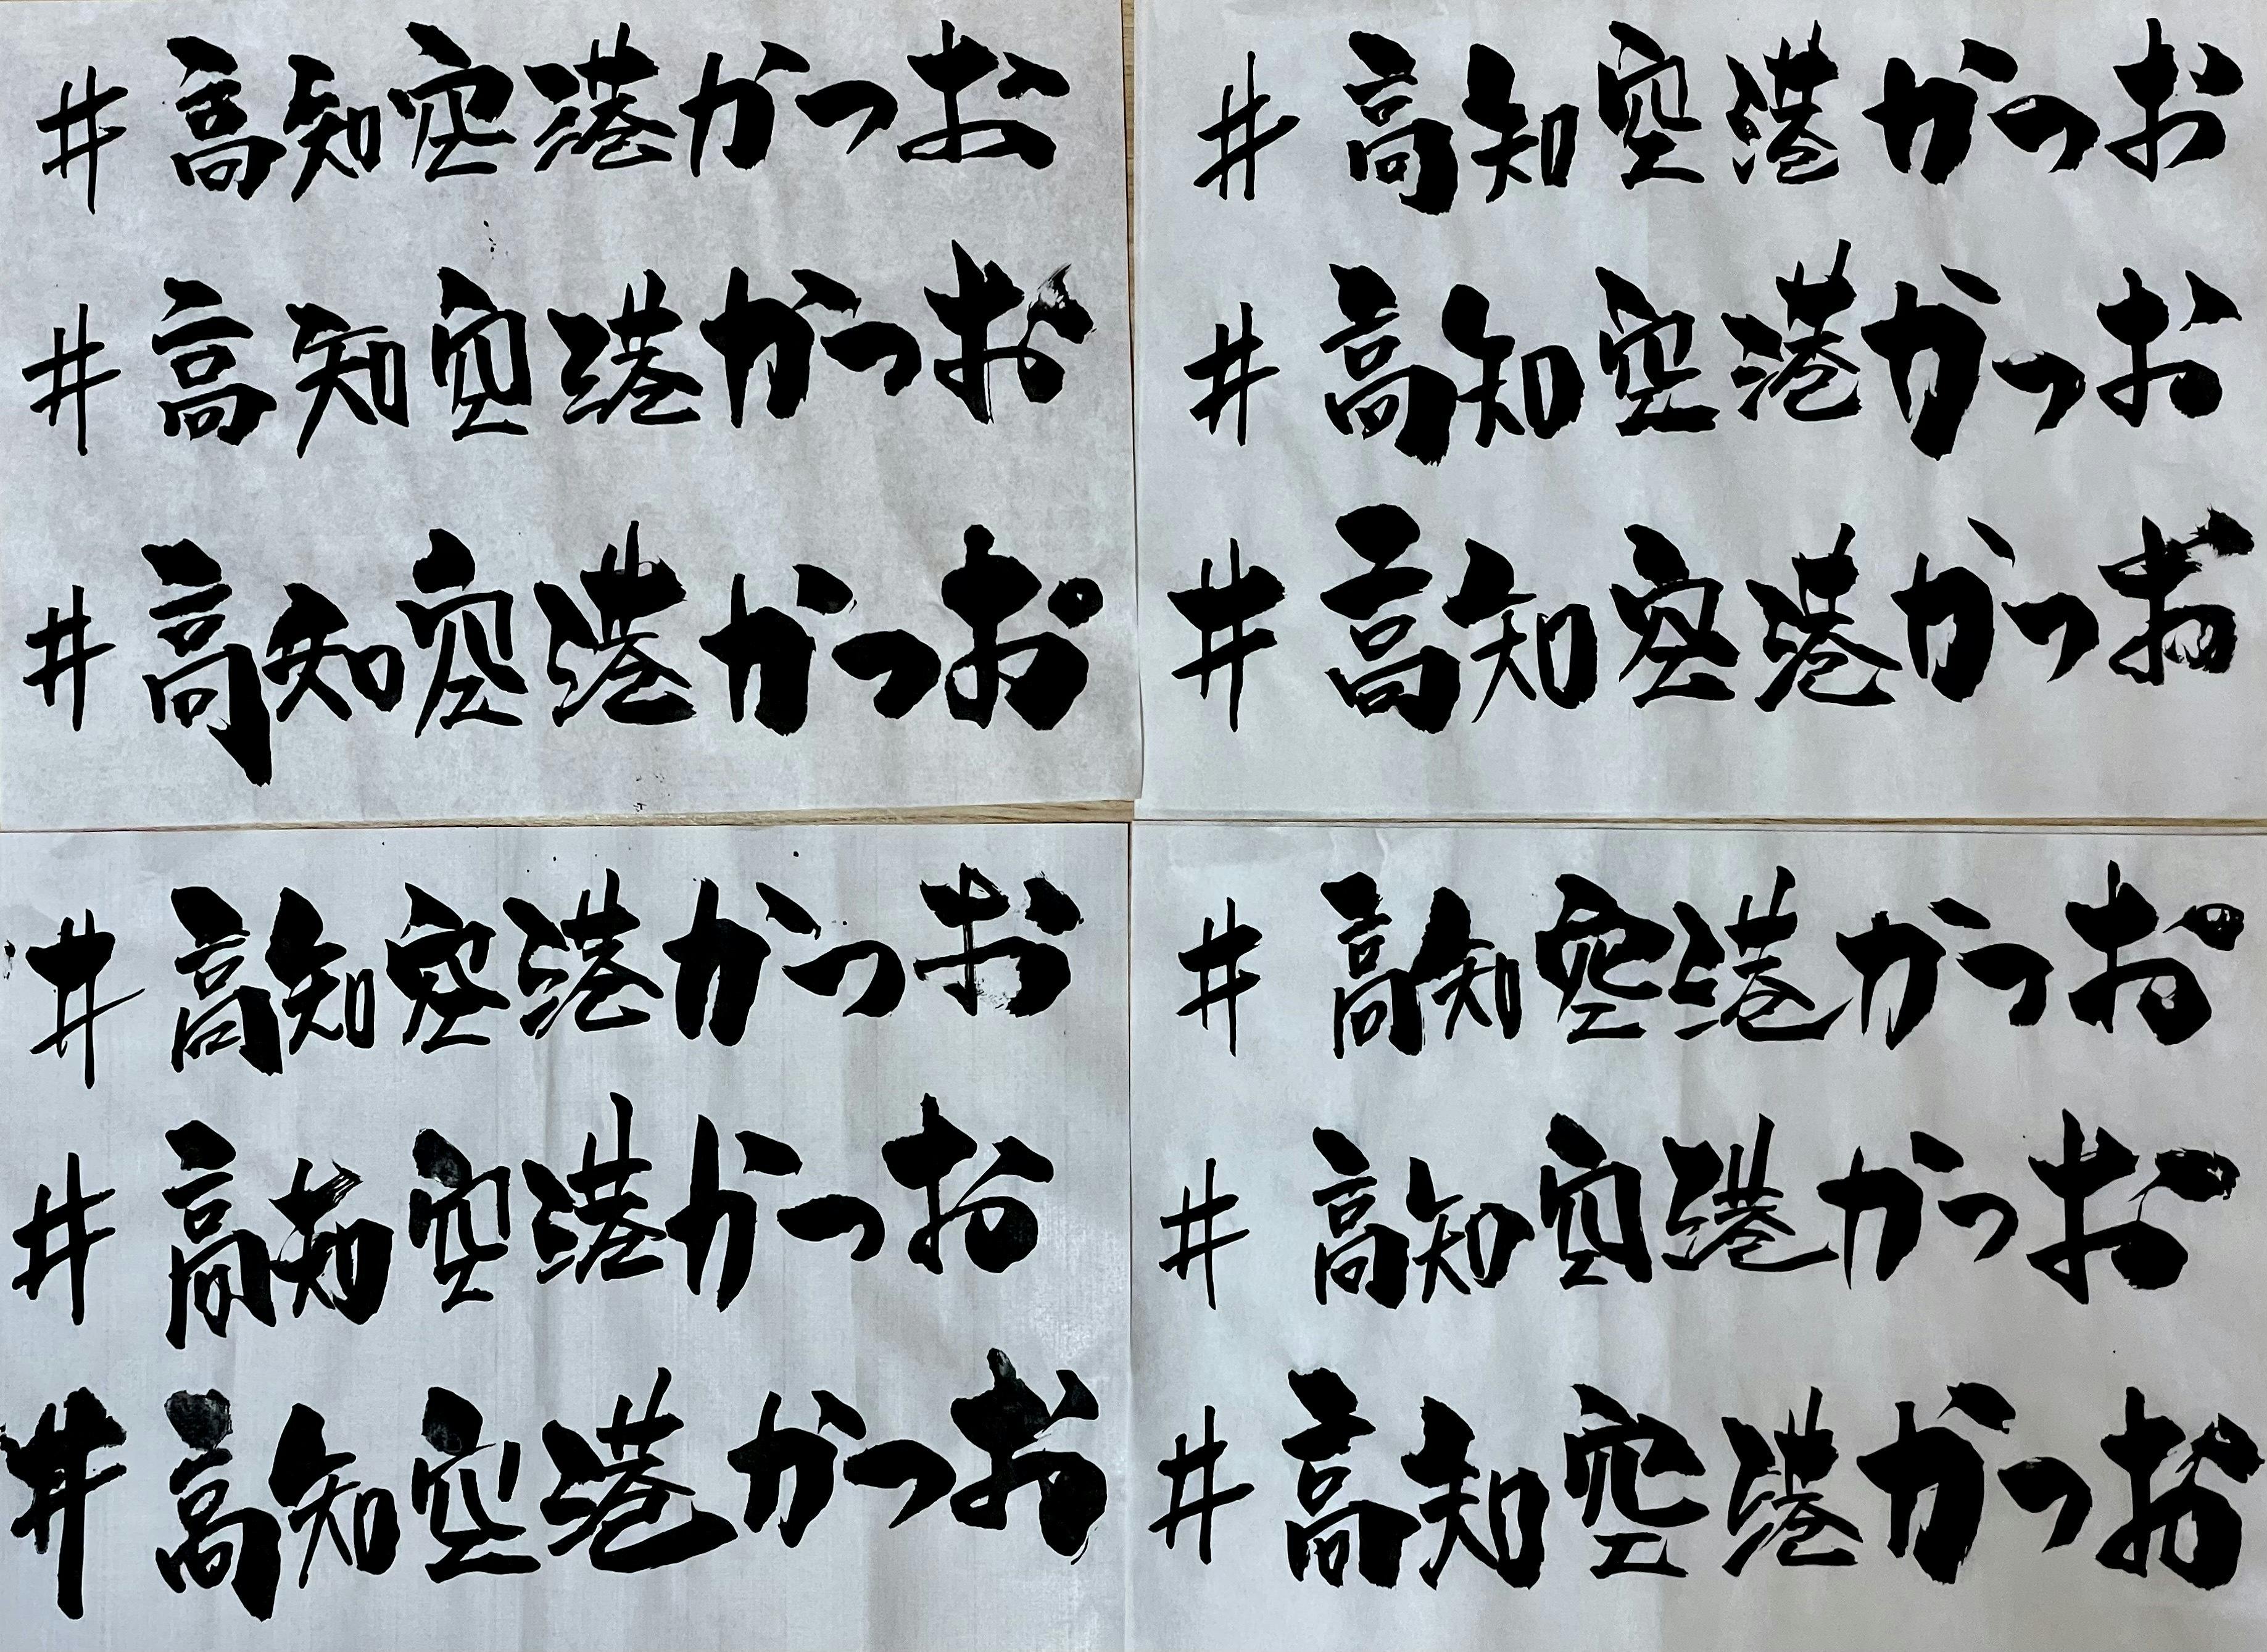 #高知空港かつお
#高知空港かつお
#高知空港かつお
#高知空港かつお
#高知空港かつお
#高知空港かつお
#高知空港かつお
#高知空港かつお
#高知空港かつお
#高知空港かつお
#高知空港かつお
#高知空港かつお